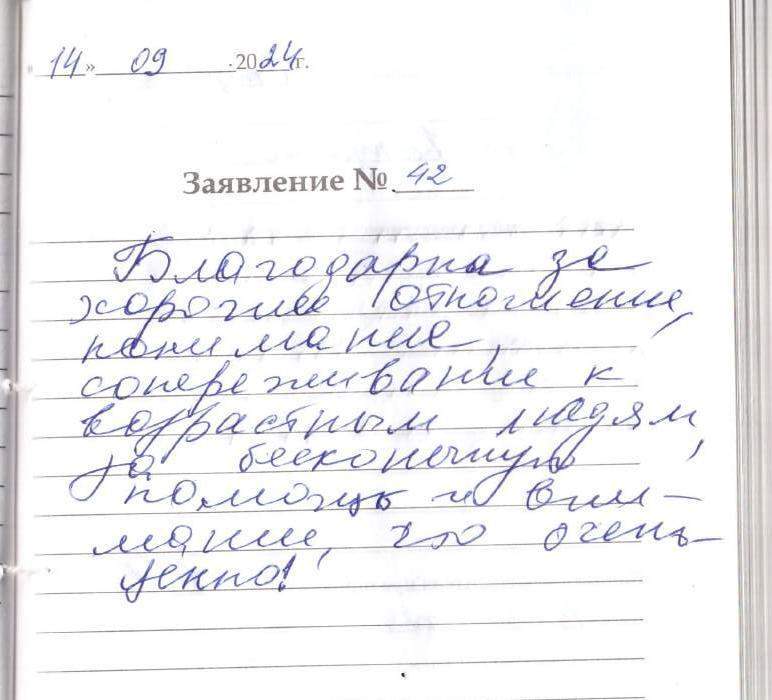 14» 09 .2024г.
Заявление № 42
Благодарна за
хорошее отношение,
понимание,
сопереживание к
возрастным людям,
за бесконечную
помощь и вни-
мание, это очень
ценно!